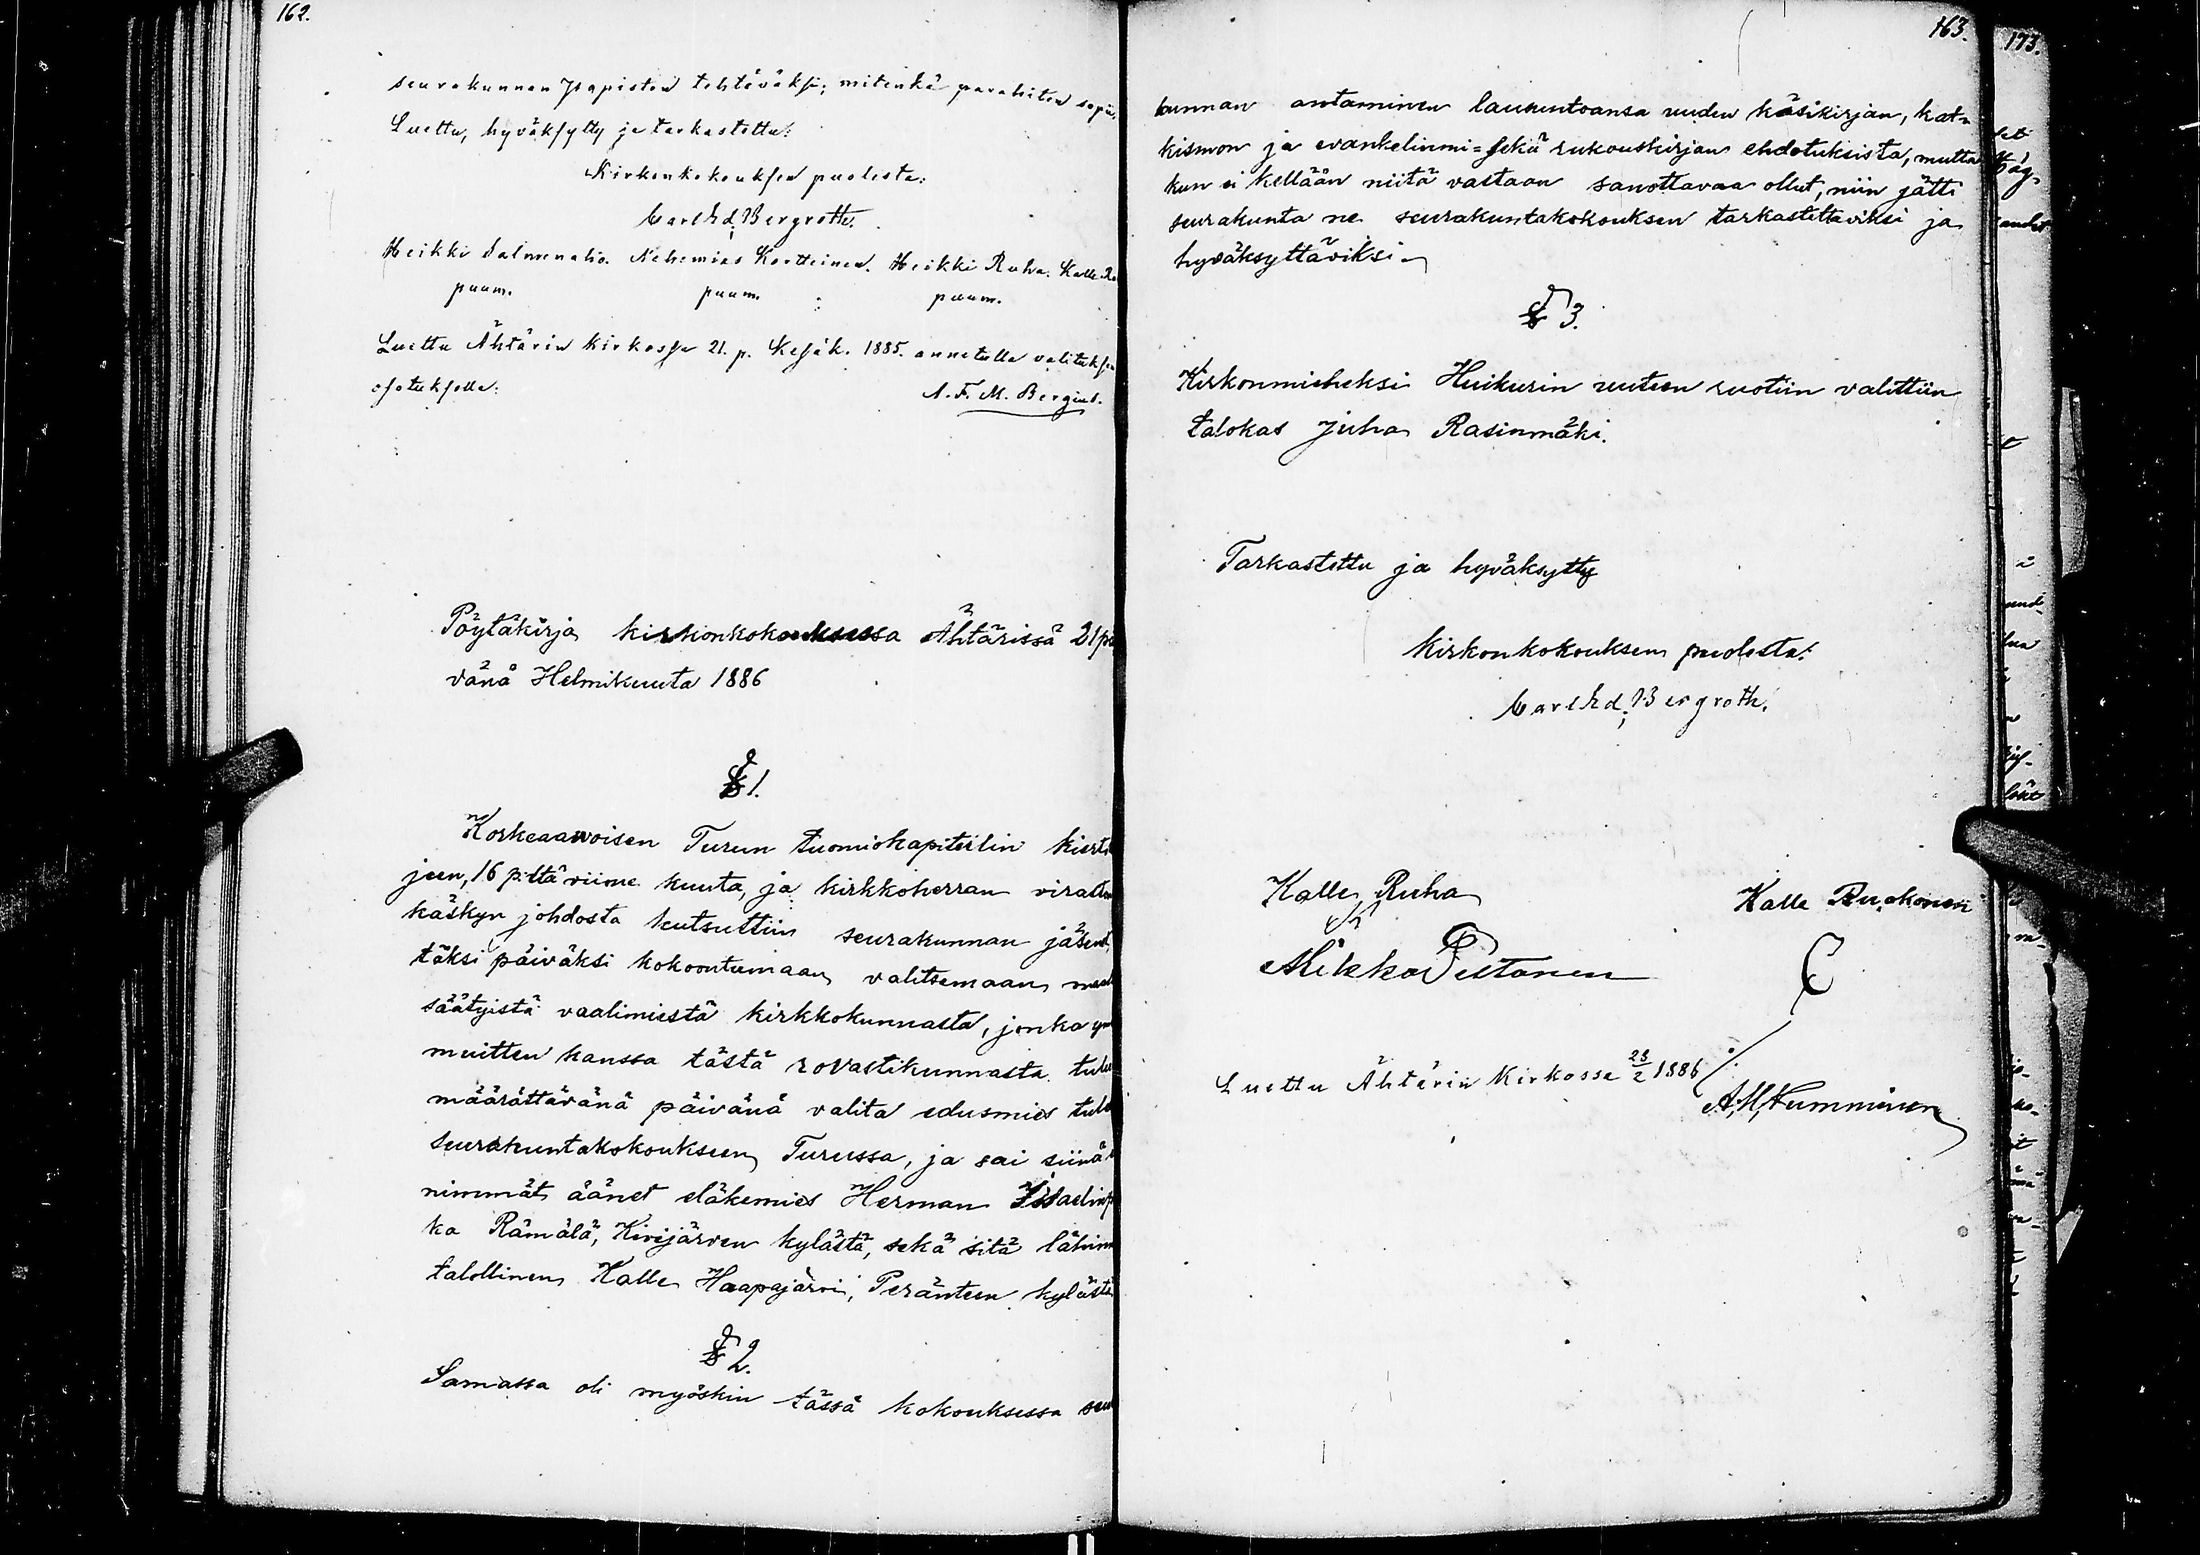 162.
seurakunnan papiston tehtäväksi, mitenkä parahiten sopii.
Luettu, hyväksytty ja tarkastettu:
Kirkonkokouksen puolesta:
Carl Ed. Bergroth.
Heikki Salmenaho. Nehemias Kortteinen. Heikki Ruha. Kalle
puum. puum. puum.
Luettu Ähtärin kirkossa 21. p. Kesäk. 1885. annetulla valituksen
osotuksella:
A. F. M. Bergius.
Pöytäkirja kirkonkokouksessa Ähtärissä 21 päi
vänä Helmikuuta 1886
§ 1.
Korkeaarvoisen Turun tuomiokapitelin kierto
jeen, 16 p:ltä viime kuuta, ja kirkkoherran virallisen
käskyn johdosta kutsuttiin seurakunnan jäsenet
täksi päiväksi kokoontumaan valitsemaan
säätyistä vaalimiestä kirkkokunnasta, jonka
muitten kanssa tästä rovastikunnasta tulee
määrättävänä päivänä valita edusmies
seurakuntakokoukseen Turussa, ja sai siinä
nimmät äänet eläkemies Herman Iisaelinp
ka Rämälä, Kivijärven kylästä, sekä sitä lähin
talollinen Kalle Haapajärvi, Peränteen kylästä
§ 2.
Samassa oli myöskin tässä kokouksessa seu
163.
kunnan antaminen lausuntoansa uuden käsikirjan, kat-
kismon ja evankeliumi= sekä rukouskirjan ehdotuksista, mutta
kun ei kellään niitä vastaan sanottavaa ollut, niin jätti
seurakunta ne seurakuntakokouksen tarkastettaviksi ja
hyväksyttäviksi.
§ 3.
Kirkonmieheksi Huikurin uuteen ruotiin valittiin
talokas Juha Rasinmäki.
Tarkastettu ja hyväksytty
Kirkonkokouksen puolesta:
Carl Ed. Bergroth.
Kalle Ruha Kalle Ruokonen
Mikko Peltonen
Luettu Ähtärin Kirkossa 28/2 1886
A. H. Numminen
173.